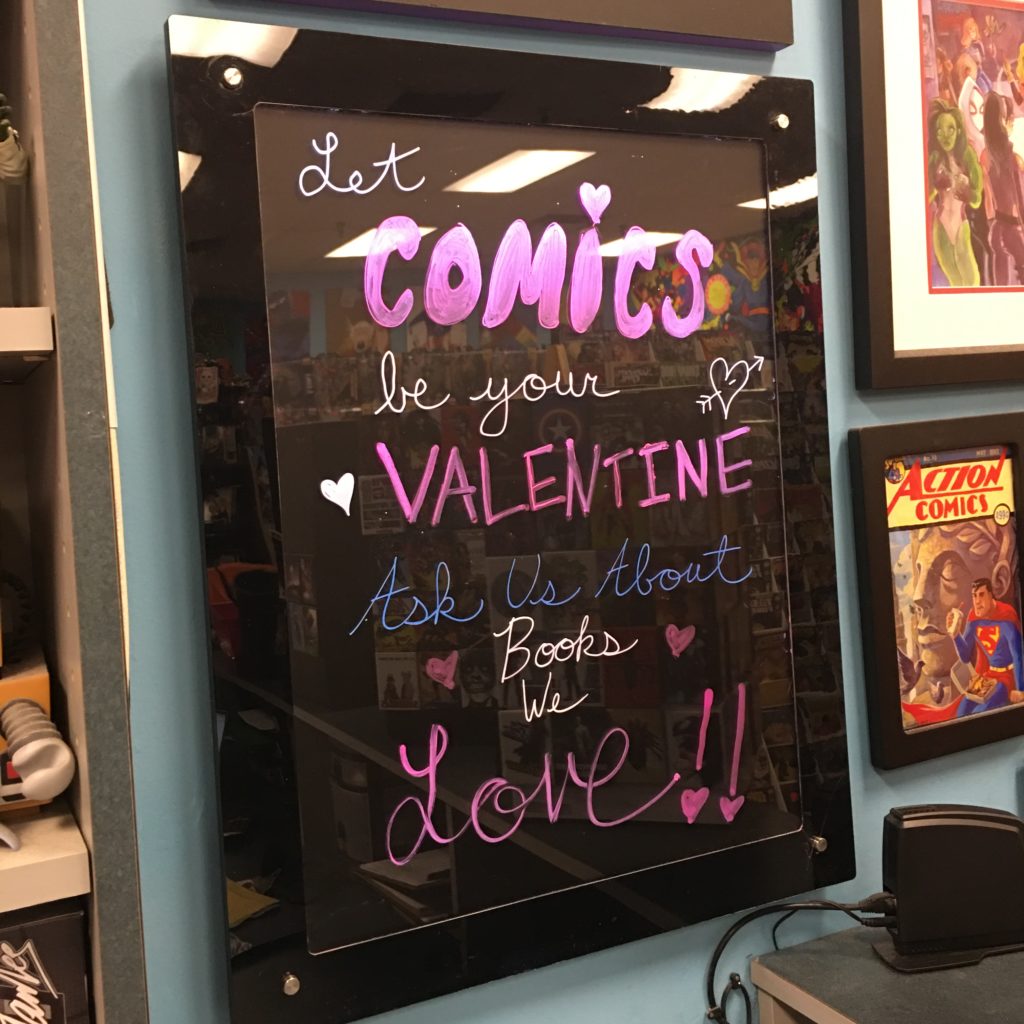 Let
COMiCS
be your
VALENTINE
Ask Us About
Books
We
Love!!
ACTION
COMICS